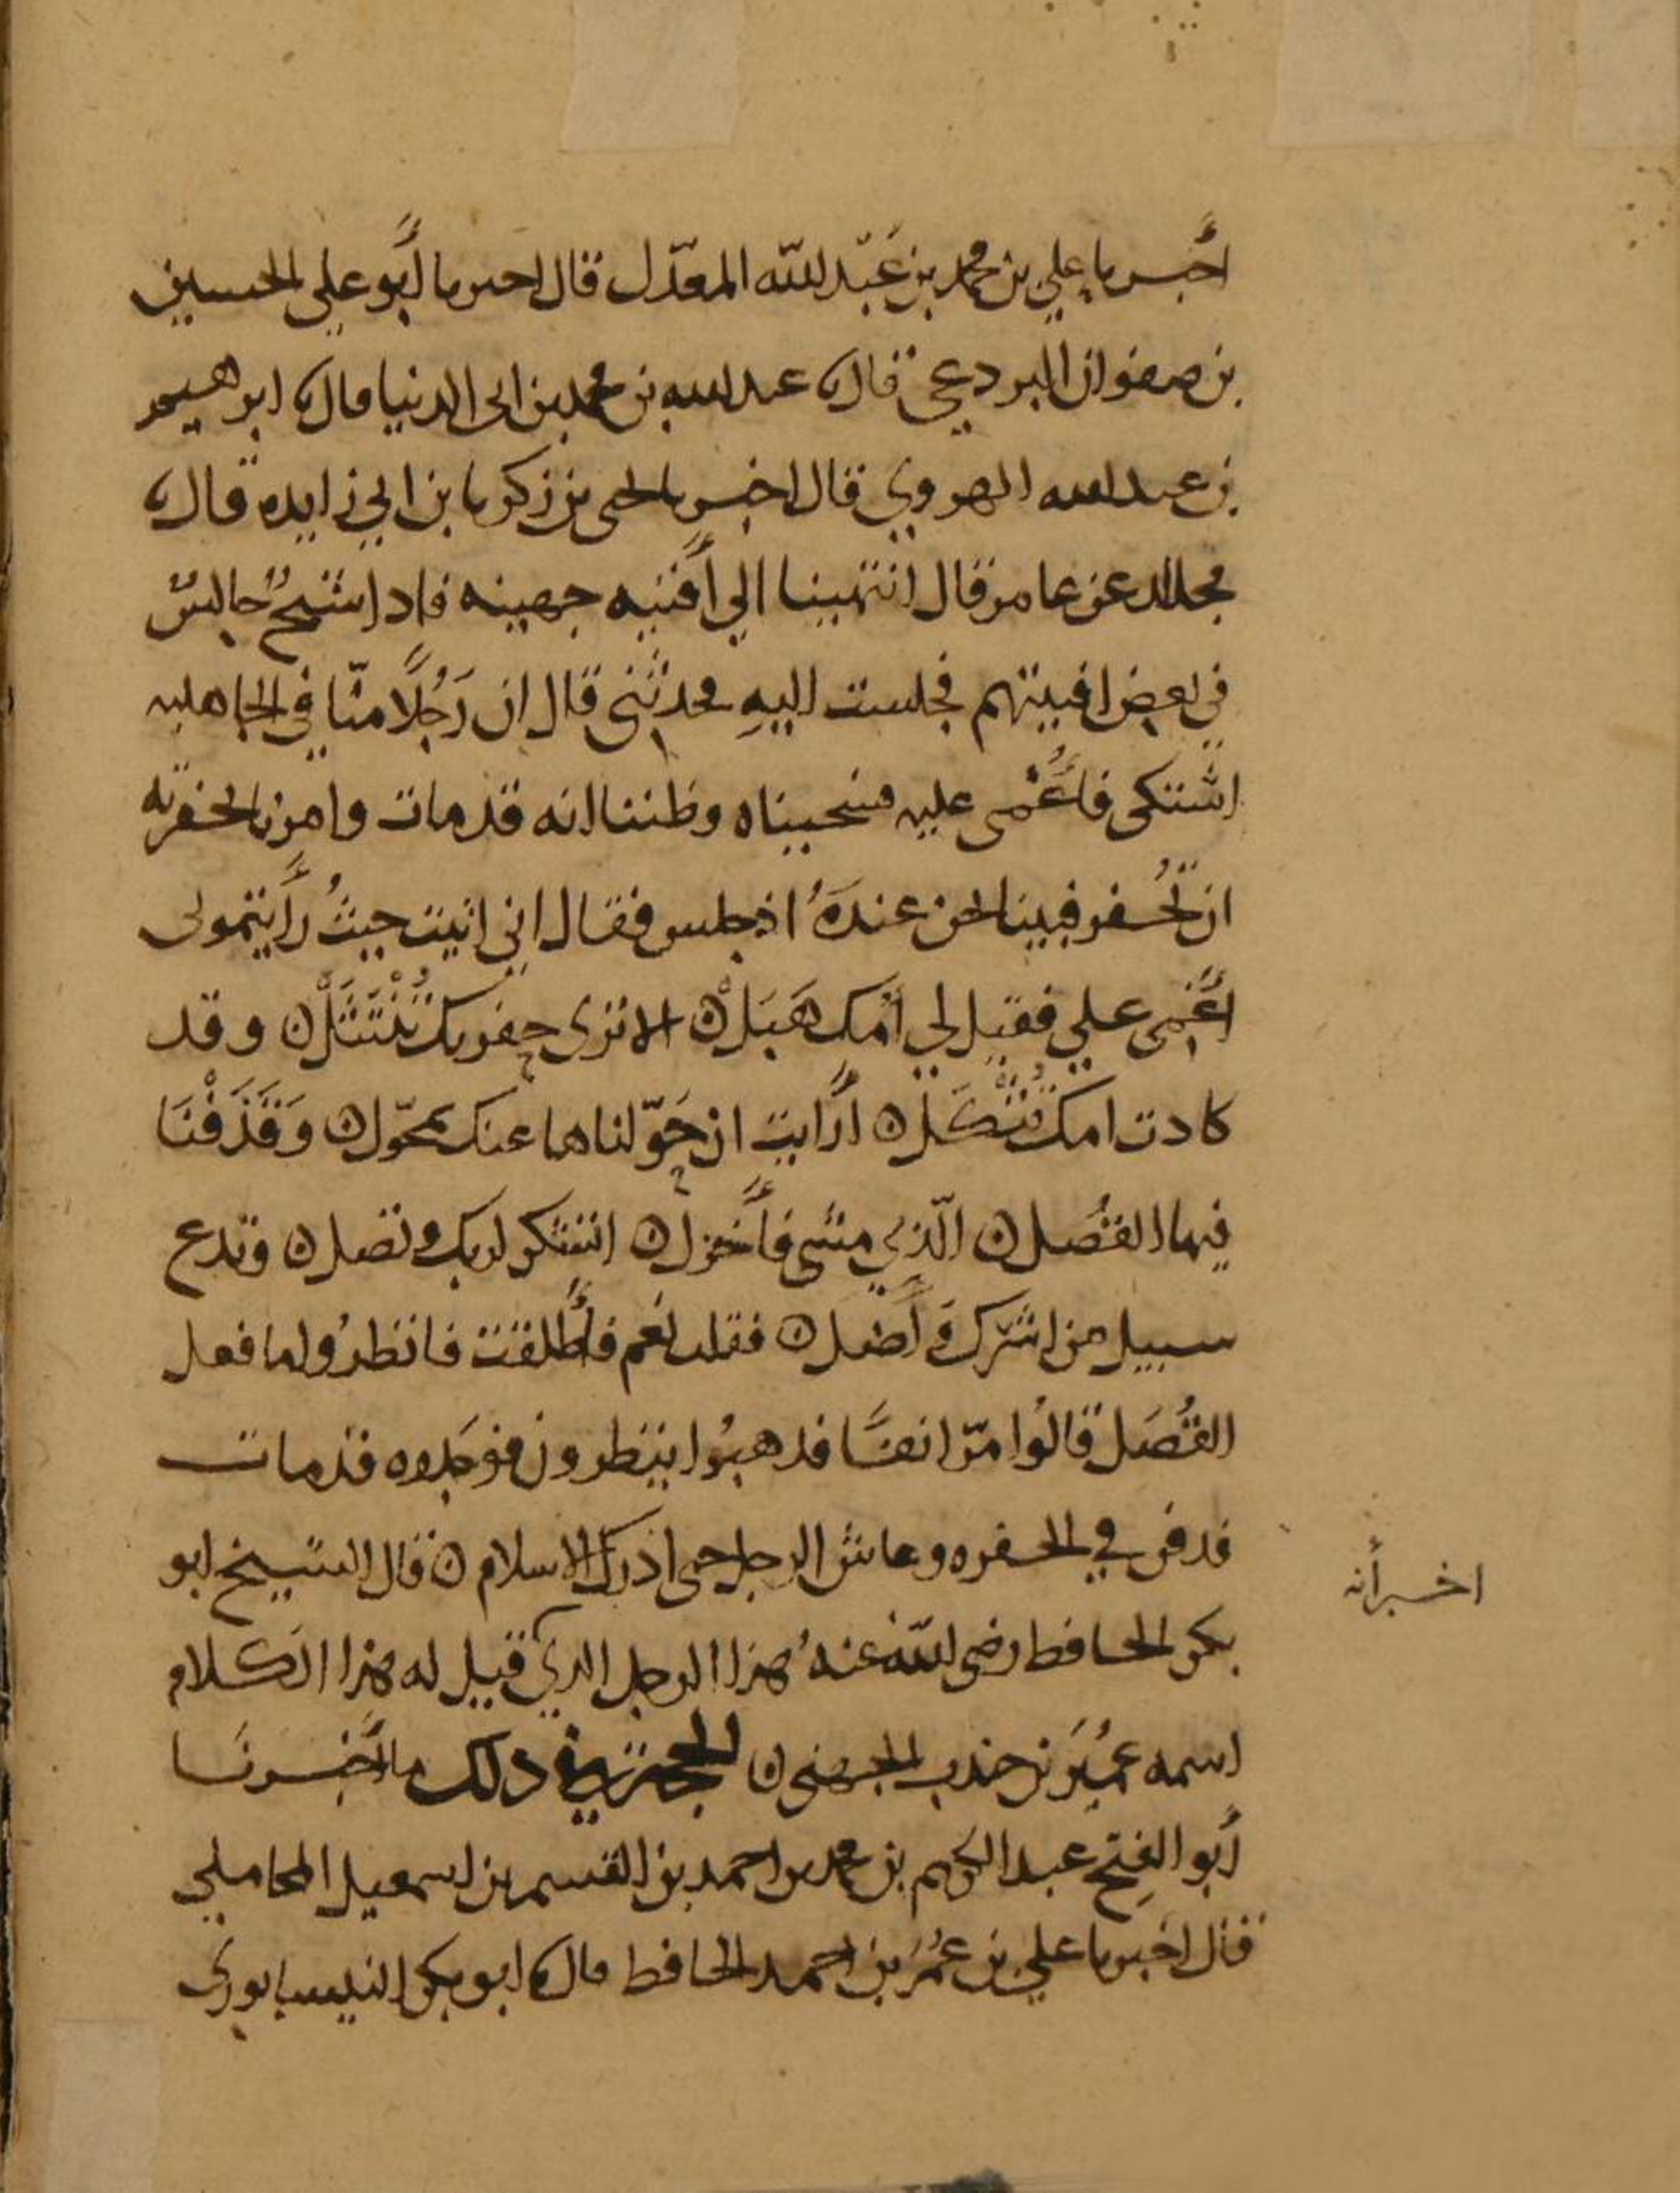 أخبرنا علي بن محمد بن عَبْد الله المعدّل قال اخبرنا أبو علي الحسين
بن صفوان البردعي قال نا عبد الله بن محمد بن ابي الدنيا قال نا ابرهيم
بن عبد الله الهروي قال اخبرنا يحيى بن زكريا بن ابي زايده قال نا
مجالد عن عامر قال انتهينا الي أفنيه جهينه فاذا شيخٌ جالسٌ
في بعض افنيتهم فجلست اليه فحدثني قال ان رَجُلًا منّا في الجاهليه
اشتكى فأُغْمى عليه فسجيناه وظننا انه قد مات وامرنا بحفرته
ان تُحفر فبينا نحن عندَهُ اذ جلس فقال اني اتيت حيثُ رأيتموني
أُغمى علي فقيل لي أمك هَبَلْ ۞ الا ترى حفرتك تُنْتَثَلْ ۞ وقد
كادت امك تُثْكَل ۞ أرأيت ان حَوّلناها عنك بمحوّل ۞ وَقَذَفْنَا
فيها القُصَل ۞ الّذي مشى فأخزل ۞ اتشكر لربك وتصل ۞ وتدع
سبيل من اشرك وَأضل ۞ فقلت نعم فأُطلقت فانظرُوا ما فعل
القُصَل قالُوا مرّ انفًا فذهبُوا ينظرون فوجدوه قد مات
فدفن في الحفره وعاش الرجل حتى ادرك الاسلام ۞ قال الشيخ ابو
بكر الحافظ رضي الله عنهُ هذا الرجل الذي قيل له هذا الكلام
اسمه عُمَير بن جندب الجهني ۞ الحجة في ذلك ما أخبرنَا
أبو الفتح عبد الكريم بن محمد بن احمد بن القسم بن اسمعيل المحاملي
قال اخبرنا علي بن عُمَر بن احمد الحافظ قال نا ابو بكر النيسابوري
اخبرانه